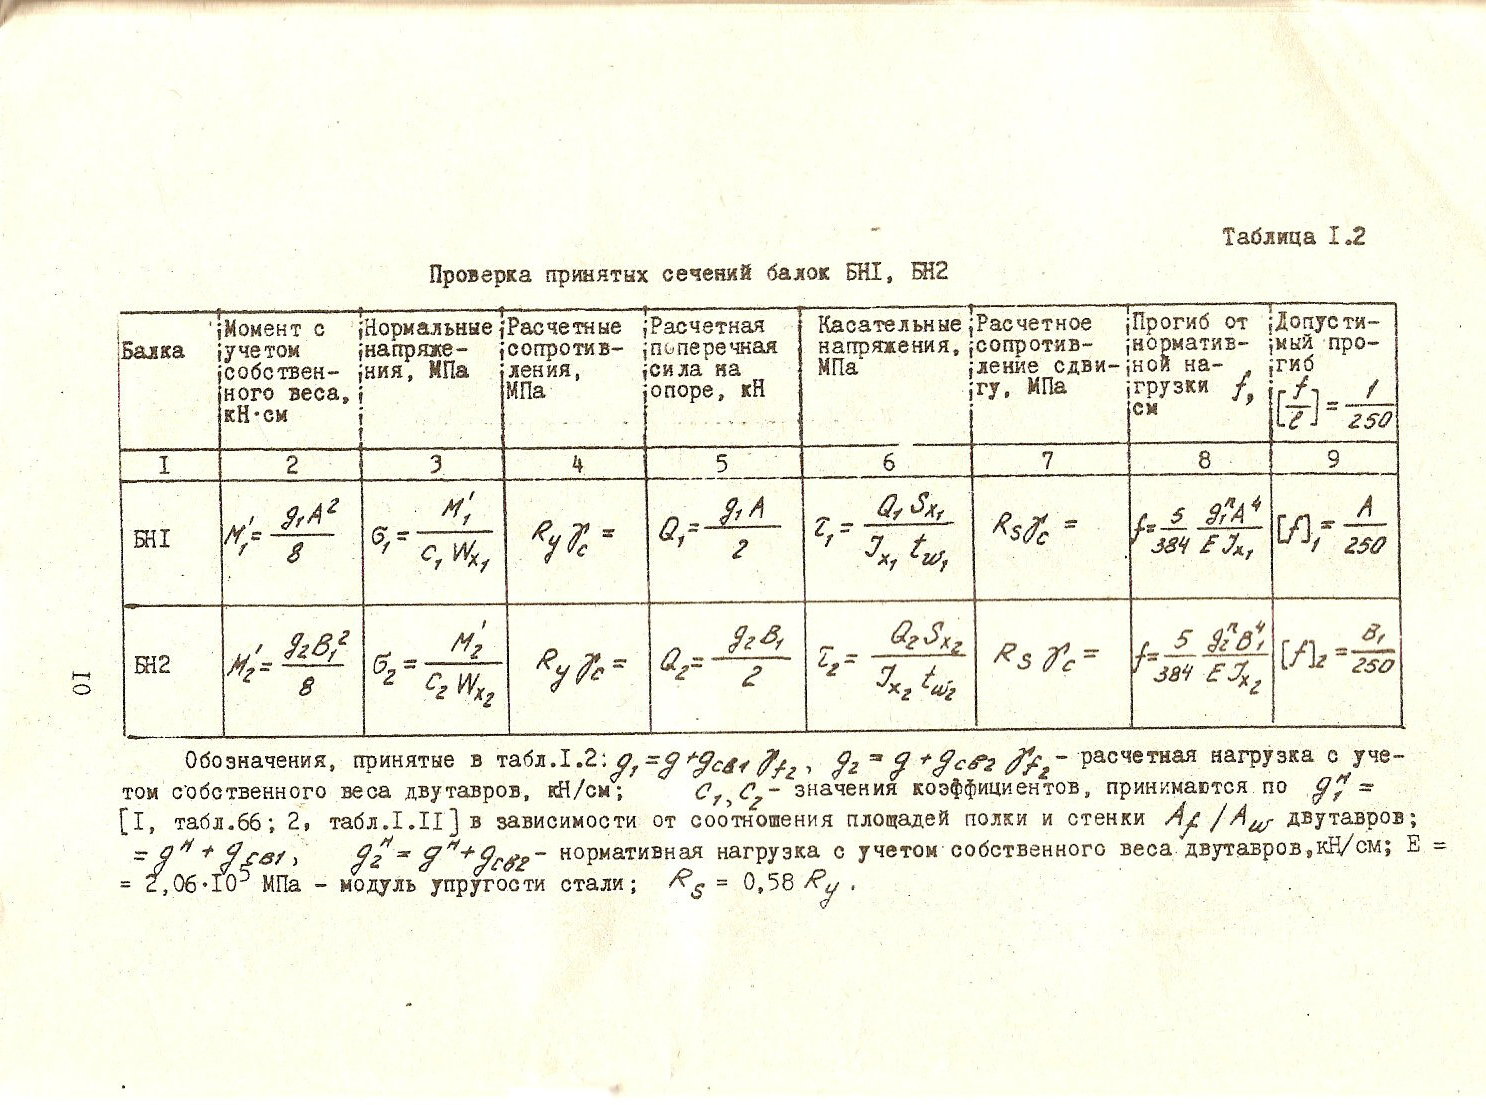 Таблица I.2
Проверка принятых сечений балок БНI, БН2
Балка
Момент с
учетом
собствен-
ного веса,
кН·см
Нормальные
напряже-
ния, МПа
Расчетные
сопротив-
ления,
МПа
Расчетная
поперечная
сила на
опоре, кН
Касательные
напряжения,
МПа
Расчетное
сопротив-
ление сдви-
гу, МПа
Прогиб от
норматив-
ной на-
грузки f,
см
Допусти-
мый про-
гиб
[f/l] = 1/250
I 2 3 4 5 6 7 8 9
БНI M₁' = g₁A²/8 σ₁ = M₁'/(c₁ Wx₁) Ry γc = Q₁ = g₁A/2 τ₁ = Q₁ Sx₁/(Jx₁ tw₁) Rs γc = f = 5/384 g₁ⁿA⁴/(E Jx₁) [f]₁ = A/250
БН2 M₂' = g₂B₁²/8 σ₂ = M₂'/(c₂ Wx₂) Ry γc = Q₂ = g₂B₁/2 τ₂ = Q₂ Sx₂/(Jx₂ tw₂) Rs γc = f = 5/384 g₂ⁿB₁⁴/(E Jx₂) [f]₂ = B₁/250
Обозначения, принятые в табл.I.2: g₁ = g + gсв1 γf₂, g₂ = g + gсв2 γf₂ - расчетная нагрузка с уче-
том собственного веса двутавров, кН/см; C₁, C₂ - значения коэффициентов, принимаются по g₁ⁿ =
[I, табл.66; 2, табл.I.II] в зависимости от соотношения площадей полки и стенки Af / Aw двутавров;
= gⁿ + gсв1, g₂ⁿ = gⁿ + gсв2 - нормативная нагрузка с учетом собственного веса двутавров, кН/см; E =
= 2,06·10⁵ МПа - модуль упругости стали; Rs = 0,58 Ry.
IO